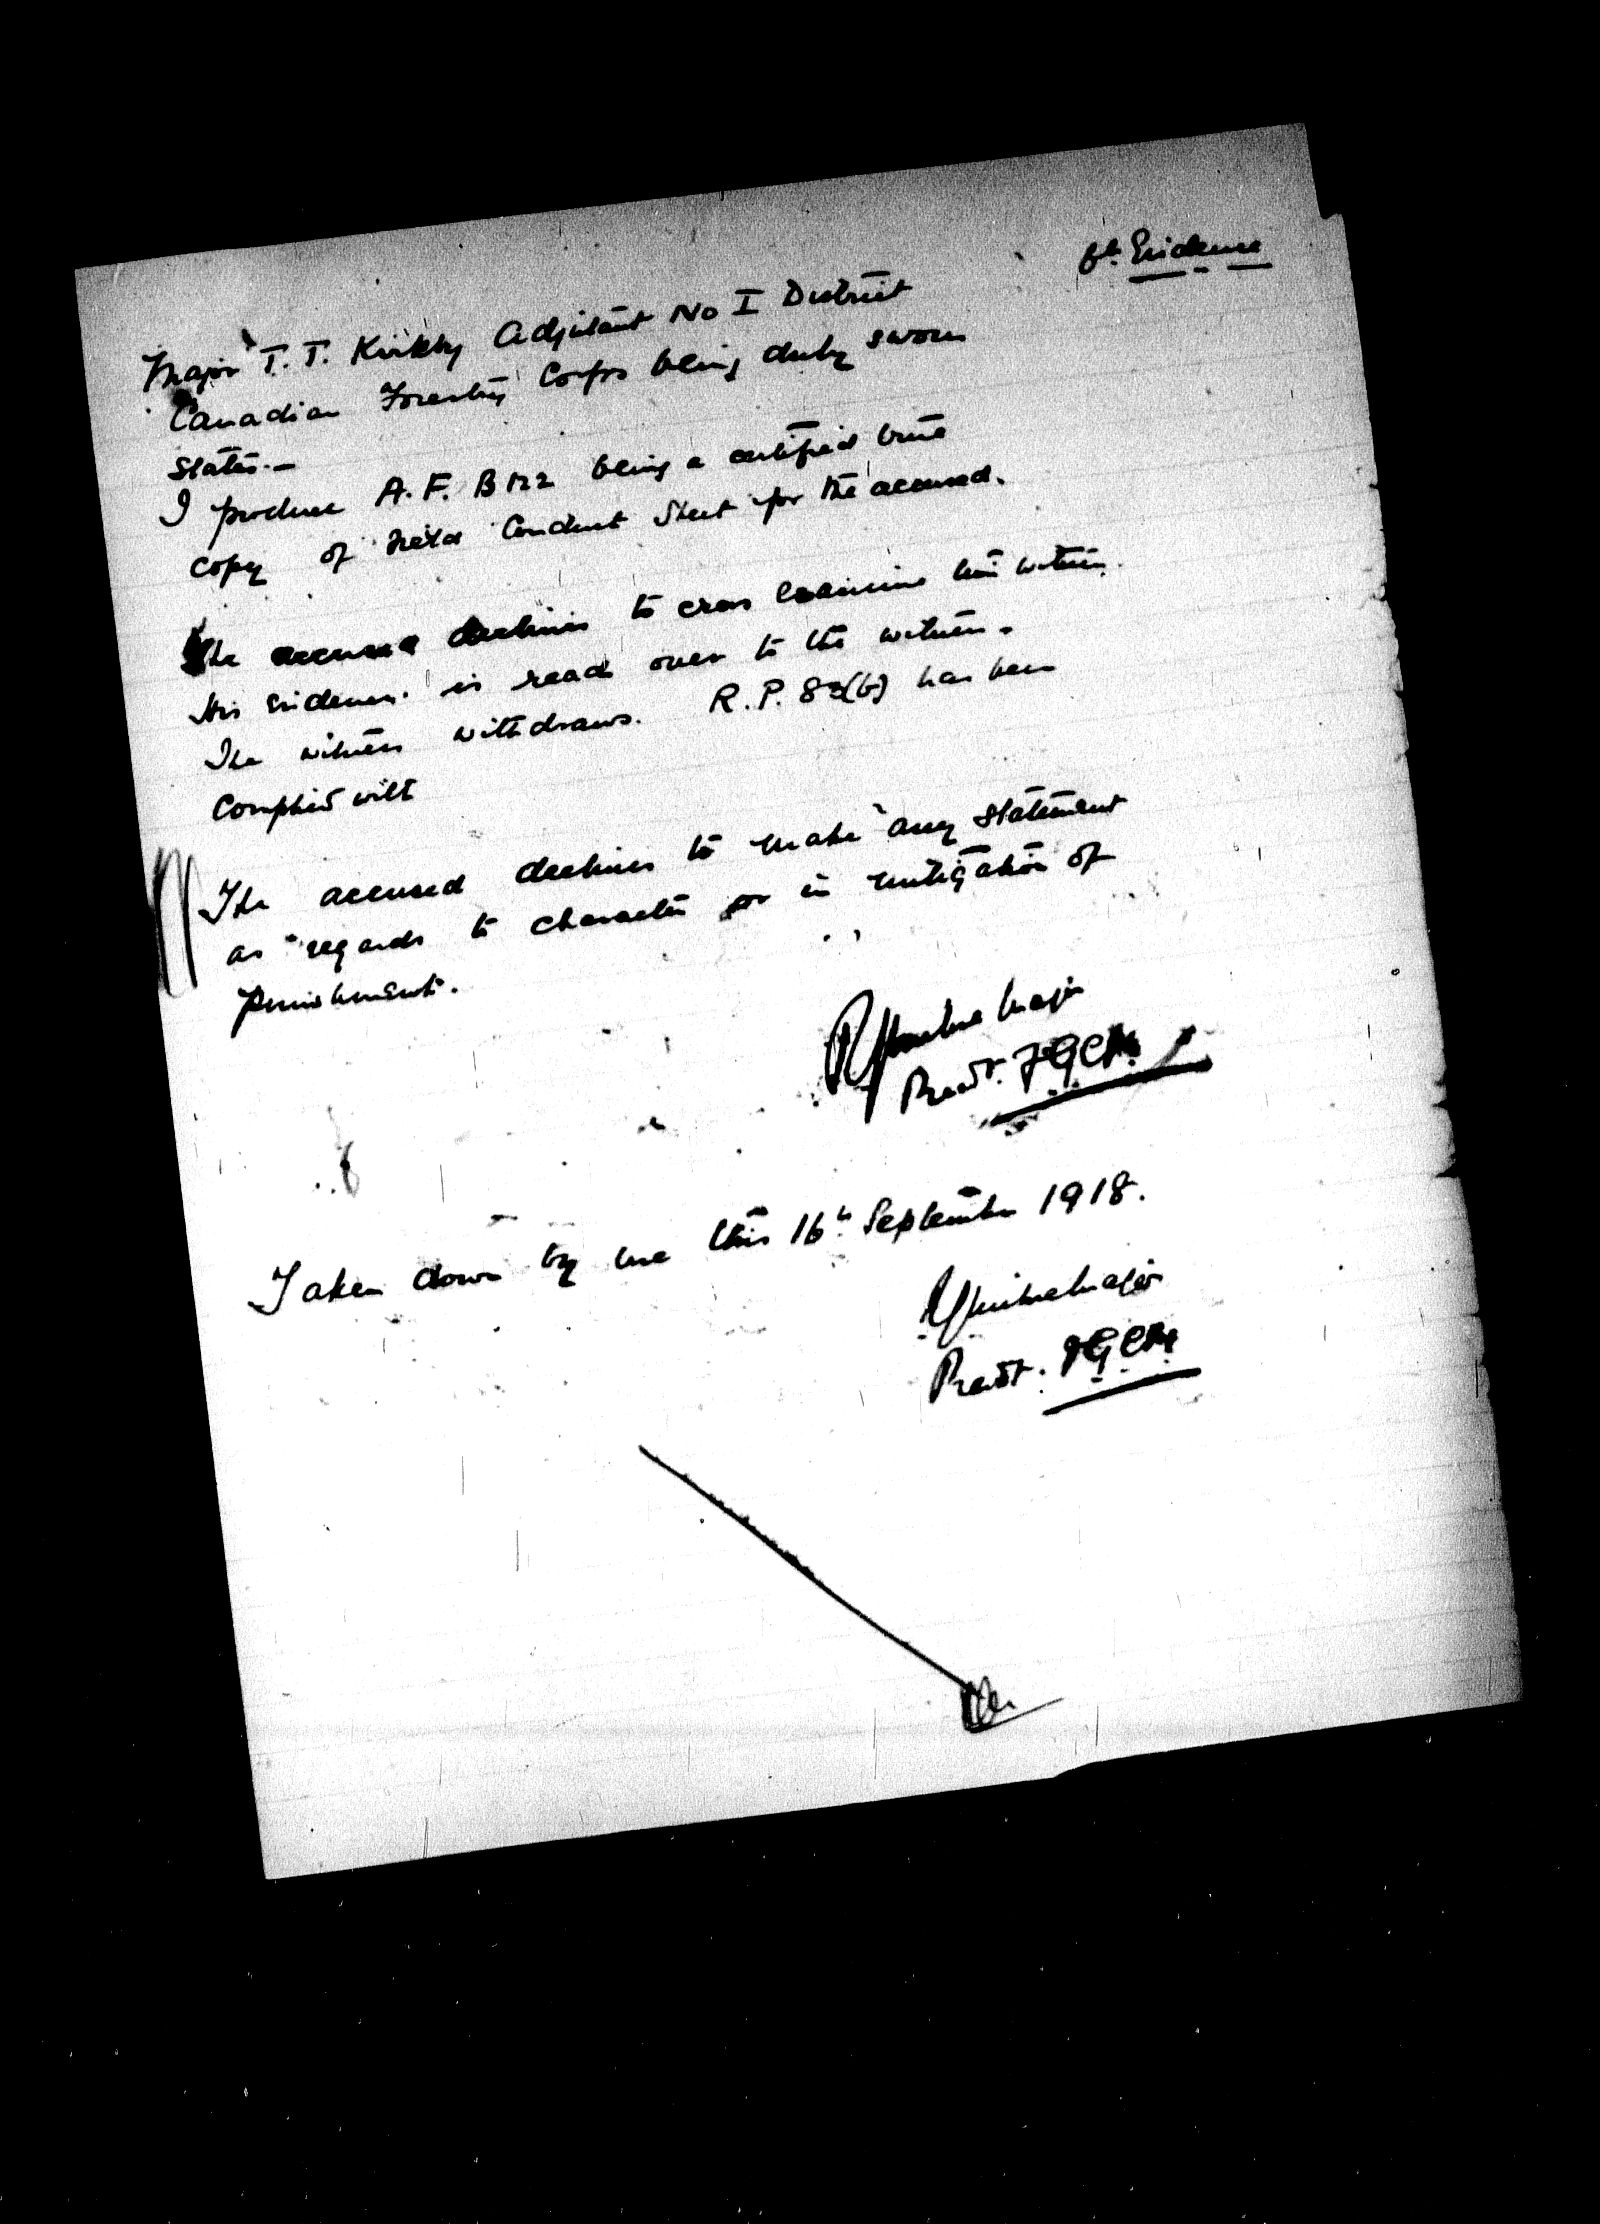 6th Evidence
Major T. T. Kirkby Adjutant No I District
Canadian Forestry Corps being duly sworn
states.—
I produce A. F. B 122 being a certified true
copy of Field Conduct Sheet for the accused.
The accused declines to cross examine this witness.
His Evidence is read over to the witness.
The witness withdraws. R.P. 83(b) has been
Complied with
The accused declines to make any statement
as regards to character or in mitigation of
punishment.
Major
Presdt. FGCM.
Taken down by me this 16th September 1918.
Major
Presdt. FGCM